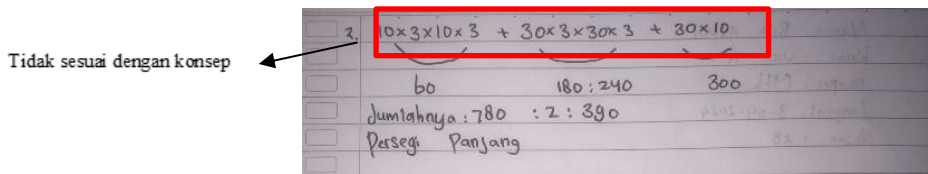 Tidak sesuai dengan konsep
2. 10×3×10×3 + 30×3×30×3 + 30×10
60 180 : 240 300
Jumlahnya : 780 : 2 : 390
Persegi Panjang